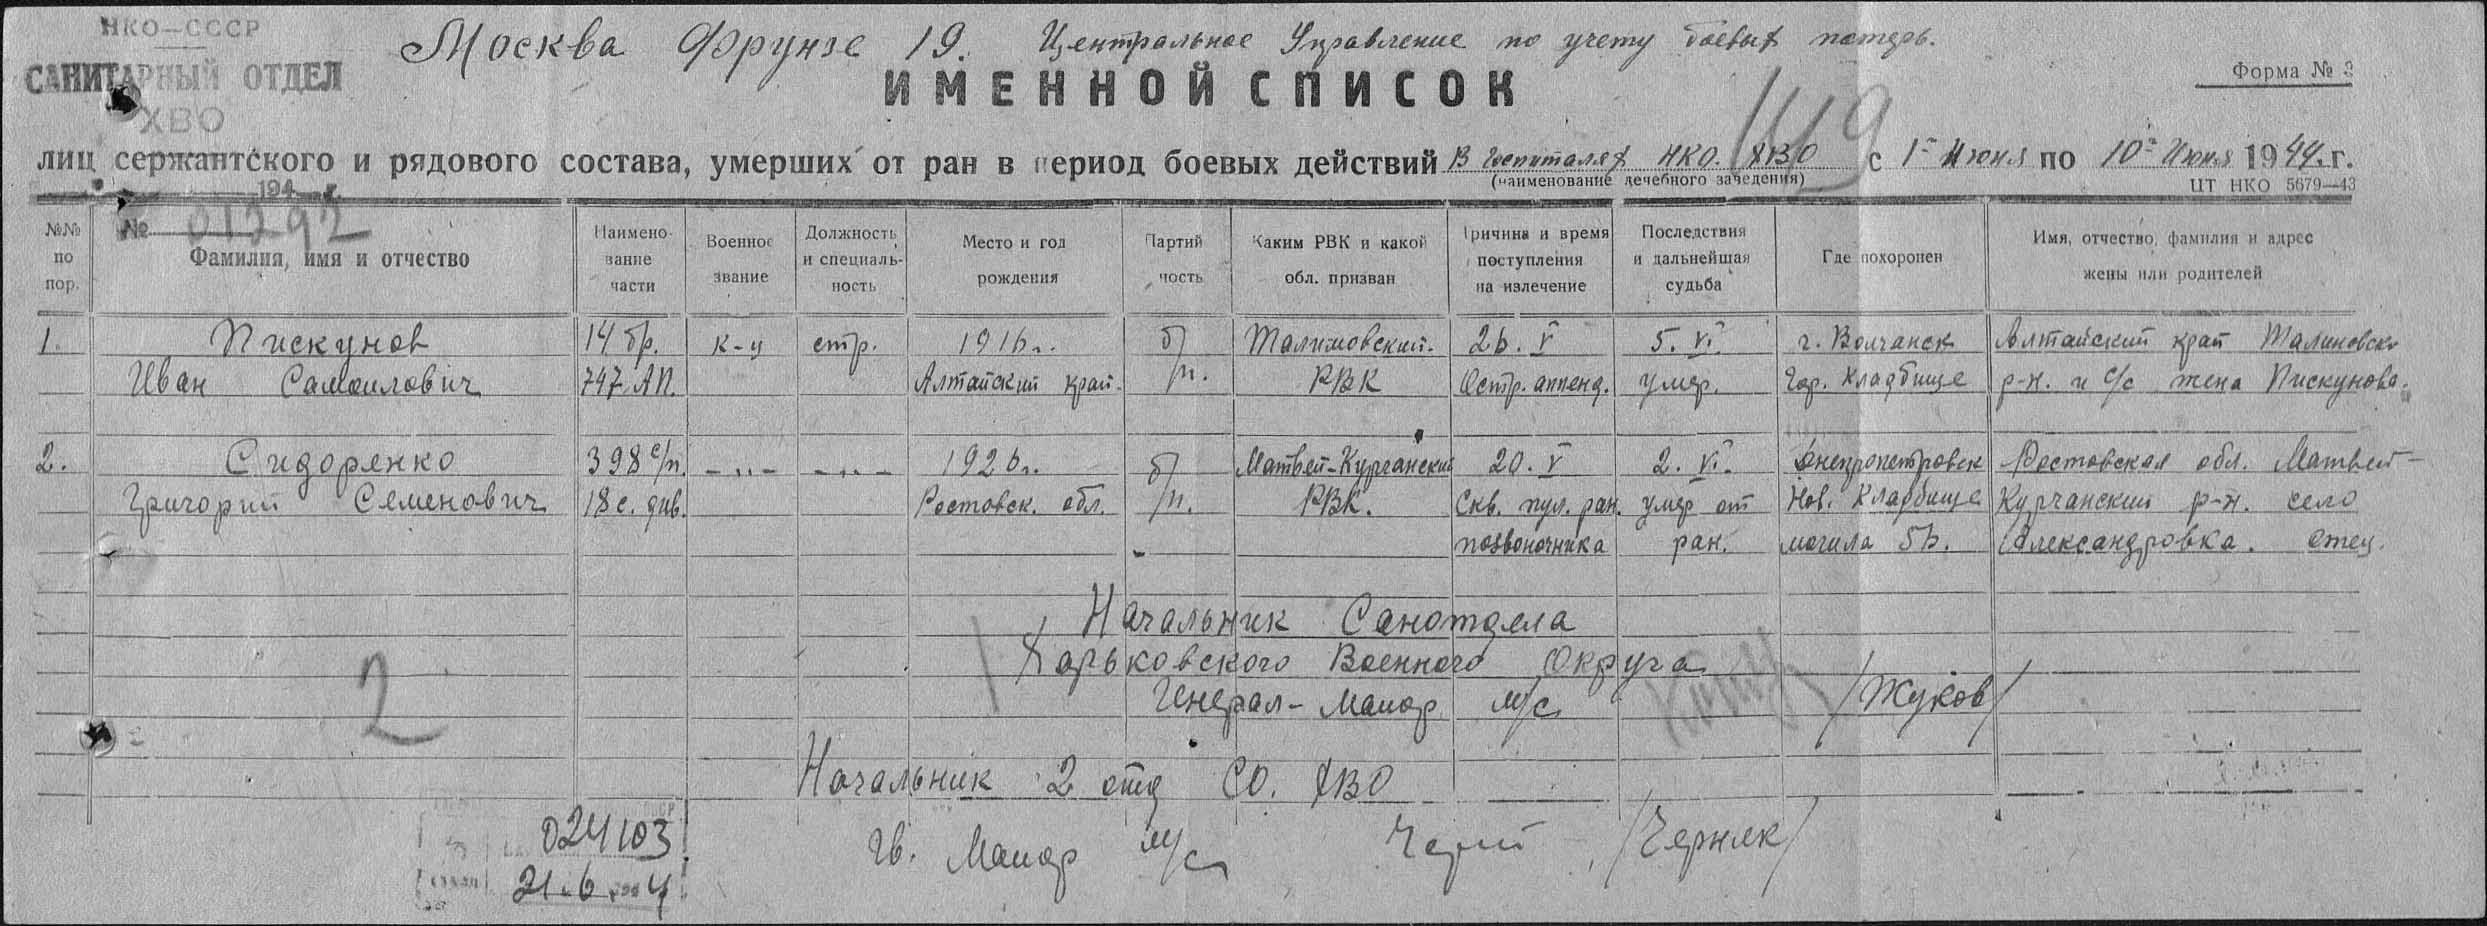 НКО—СССР
САНИТАРНЫЙ ОТДЕЛ
ХВО
194 г.
№ 01292
Москва Фрунзе 19. Центральное Управление по учету боевых потерь.
ИМЕННОЙ СПИСОК
Форма № 3
лиц сержантского и рядового состава, умерших от ран в период боевых действий в госпиталях НКО. ХВО с 1го Июня по 10го Июня 1944 г.
(наименование лечебного заведения)
ЦТ НКО 5679—43
№№ по пор. Фамилия, имя и отчество Наименование части Военное звание Должность и специальность Место и год рождения Партийность Каким РВК и какой обл. призван Причина и время поступления на излечение Последствия и дальнейшая судьба Где похоронен Имя, отчество, фамилия и адрес жены или родителей
1. Пискунов 14 бр. к-ц стр. 1916г. б/ Талимовский. 26. V 5. VI. г. Волчанск Алтайский край Талиновск
Иван Самоилович 747 АП. Алтайский край. п. РВК Остр. аппенд. умер. Гор. кладбище р-н. и с/с жена Пискунова.
2. Сидоренко 398 с/п. - " - - " - 1926г. б/ Матвей-Курганский 20. V 2. VI. Днепропетровск Ростовская обл. Матвей-
Григорий Семенович 18 с. див. Ростовск. обл. п. РВК. Скв. пул. ран. умер от Нов. Кладбище Курчанский р-н. село
позвоночника ран. могила 56. Александровка. отец.
Начальник Санотдела
Харьковского Военного Округа
Генерал-майор м/с /Жуков/
2
Начальник 2 отд СО. ХВО
Гв. Майор м/с /Черняк/
024103
21.6. 4